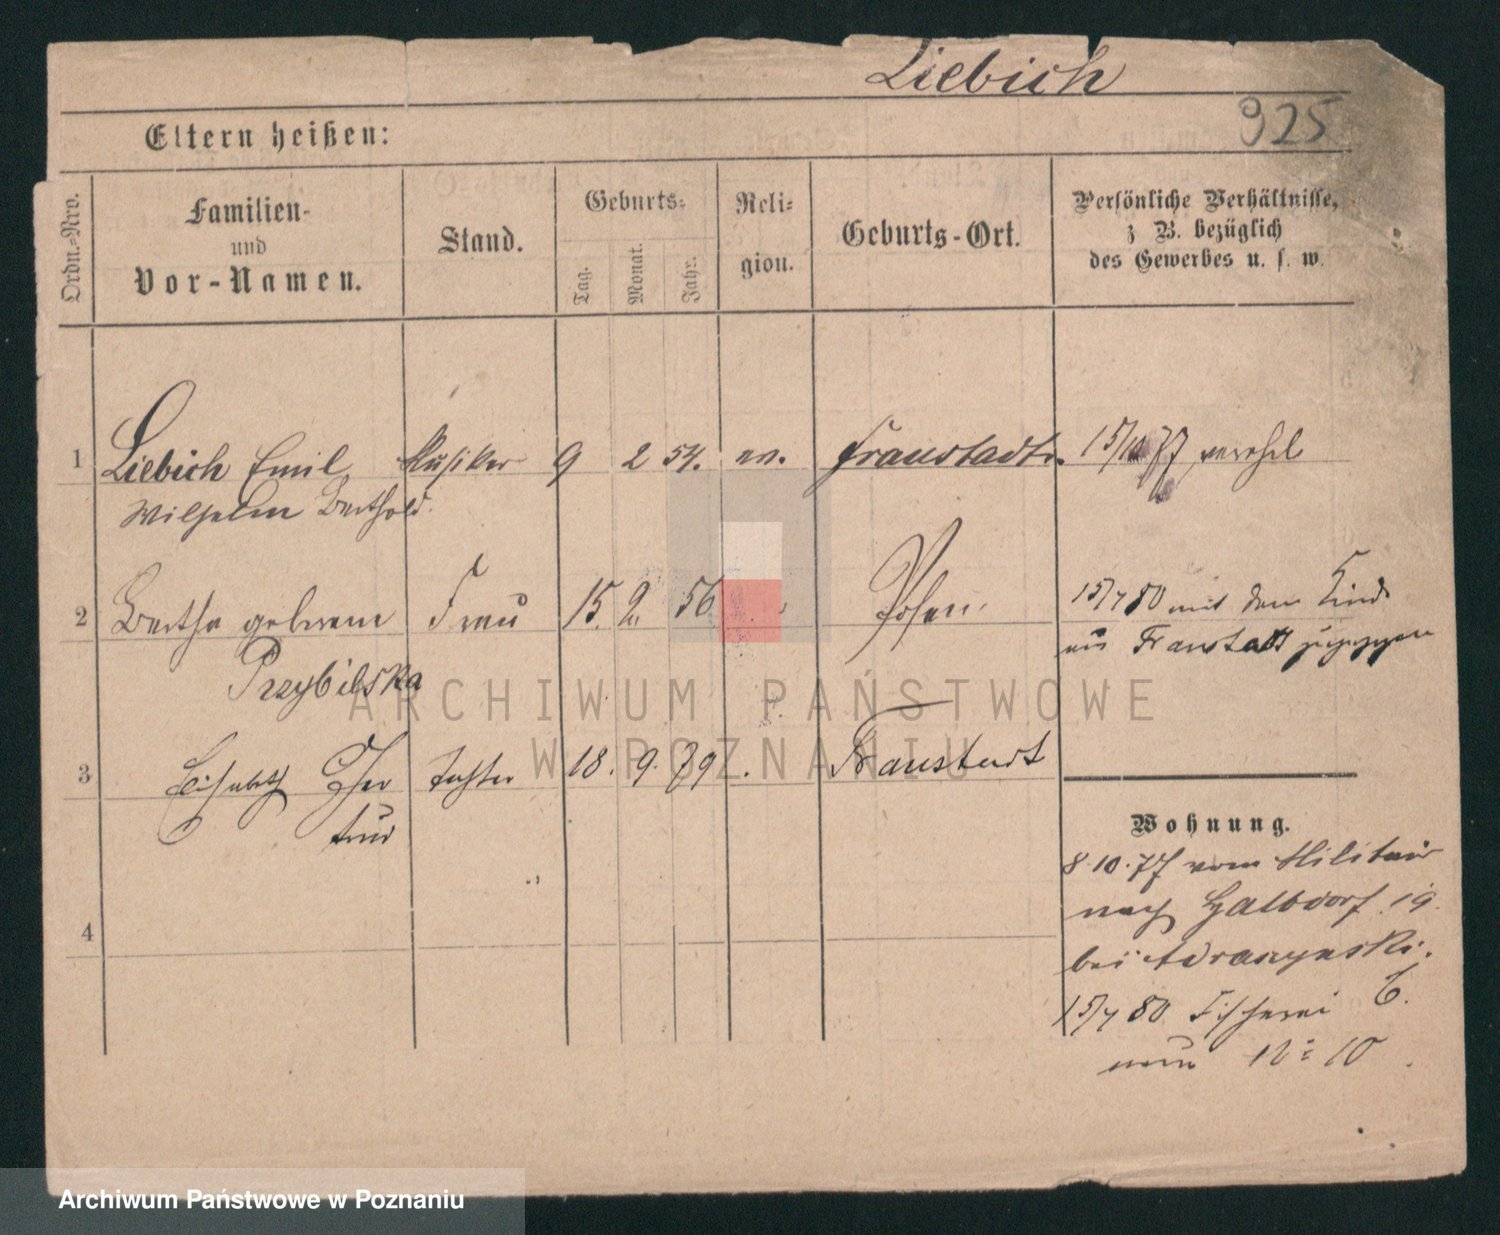 Liebich
925
Eltern heißen:
Ordn.=Nro.
Familien-
und
Vor-Namen.
Stand.
Geburts=
Tag.
Monat.
Jahr.
Reli=
gion.
Geburts-Ort.
Persönliche Verhältnisse,
z B. bezüglich
des Gewerbes u. s. w.
1 Liebich Emil Musiker 9 2 54. ev. Fraustadt. 15/10 77 verehel
Wilhelm Berthold.
2 Bertha geborene Frau 15. 2. 56 Posen. 15/7 80 mit dem Kinde
Przybilska
aus Fraustadt zugezogen
3 Elisabeth Ger Tochter 18. 9. 79. Fraustadt
trud
4
Wohnung.
8.10.77 vom Militair
nach Halbdorf. 19.
bei
15/7 80 Fischerei 6.
10
ARCHIWUM PAŃSTWOWE
W POZNANIU
Archiwum Państwowe w Poznaniu